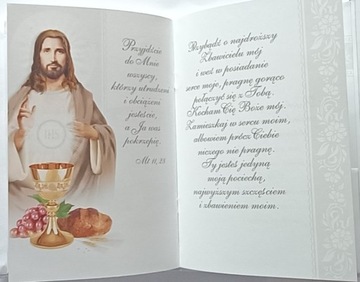 Przyjdźcie
do Mnie
wszyscy,
którzy utrudzeni
i obciążeni
jesteście,
a Ja was
pokrzepię.
Mt 11, 28
IHS
Przybądź o najdroższy
Zbawicielu mój
i weź w posiadanie
serce moje, pragnę gorąco
połączyć się z Tobą.
Kocham Cię Boże mój.
Zamieszkaj w sercu moim,
albowiem prócz Ciebie
niczego nie pragnę.
Ty jesteś jedyną
moją pociechą,
najwyższym szczęściem
i zbawieniem moim.